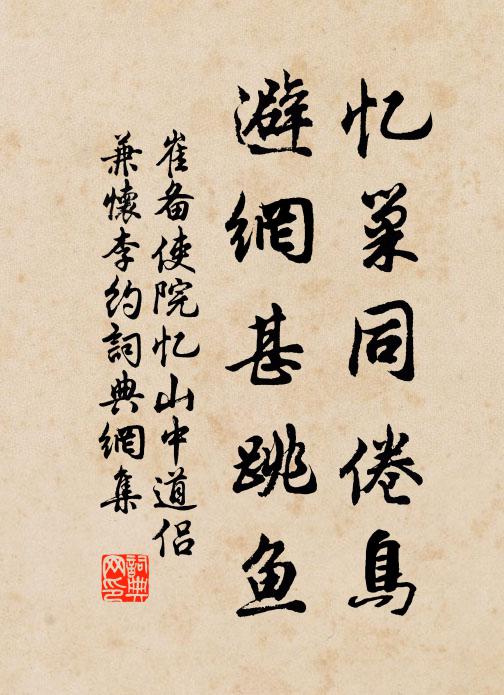 忆巢同倦鳥
避網甚跳鱼
崔备使院忆山中道侣
兼懷李约詞典網集
詞典網印